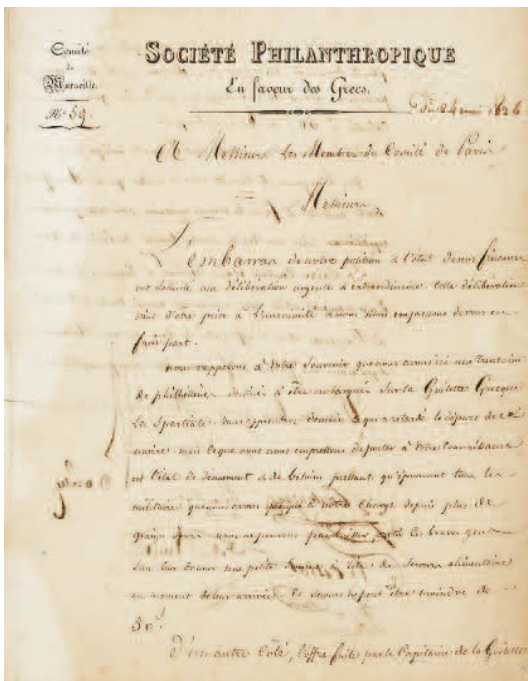 Comité
de
Marseille.
N.° 59.
SOCIÉTÉ PHILANTHROPIQUE
En faveur des Grecs.
24 mai 1826
A Messieurs Les Membres du Comité de Paris
Messieurs,
L'embarras de notre position & l'état de nos finances
ont sollicité une délibération urgente & extraordinaire. Cette délibération
vient d'être prise à l'unanimité & nous nous empressons de vous en
faire part.
nous rappelons à votre souvenir que nous avons ici une trentaine
de philhellènes destinés à être embarqués sur la Goëlette Grecque
La Spartiate. vous apprendre ce qui a retardé le départ de ce
navire; mais ce que nous nous empressons de porter à votre connaissance
est l'état de dénuement & de besoins pressant qu'éprouvent tous les
militaires que nous avons à notre charge depuis plus de
quinze jours. nous ne pouvons partir ces braves gens
sans leur donner une petite à titre de secours alimentaire
au moment de leur arrivée. Ce secours ne peut être moindre de
50 f.
D'un autre Côté, l'offre faite par le Capitaine de la Goëlette